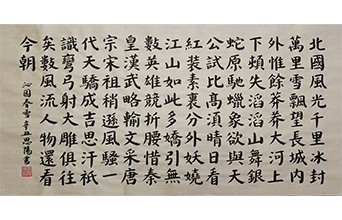 北國風光千里冰封
萬里雪飄望長城内
外惟餘莽莽大河上
下頓失滔滔山舞銀
蛇原馳蠟象欲與天
公試比高須晴日看
紅装素裹分外妖嬈
江山如此多嬌引無
數英雄競折腰惜秦
皇漢武略輸文采唐
宗宋祖稍遜風騷一
代天驕成吉思汗祇
識彎弓射大雕俱往
矣數風流人物還看
今朝
沁園春雪辛丑思陽書